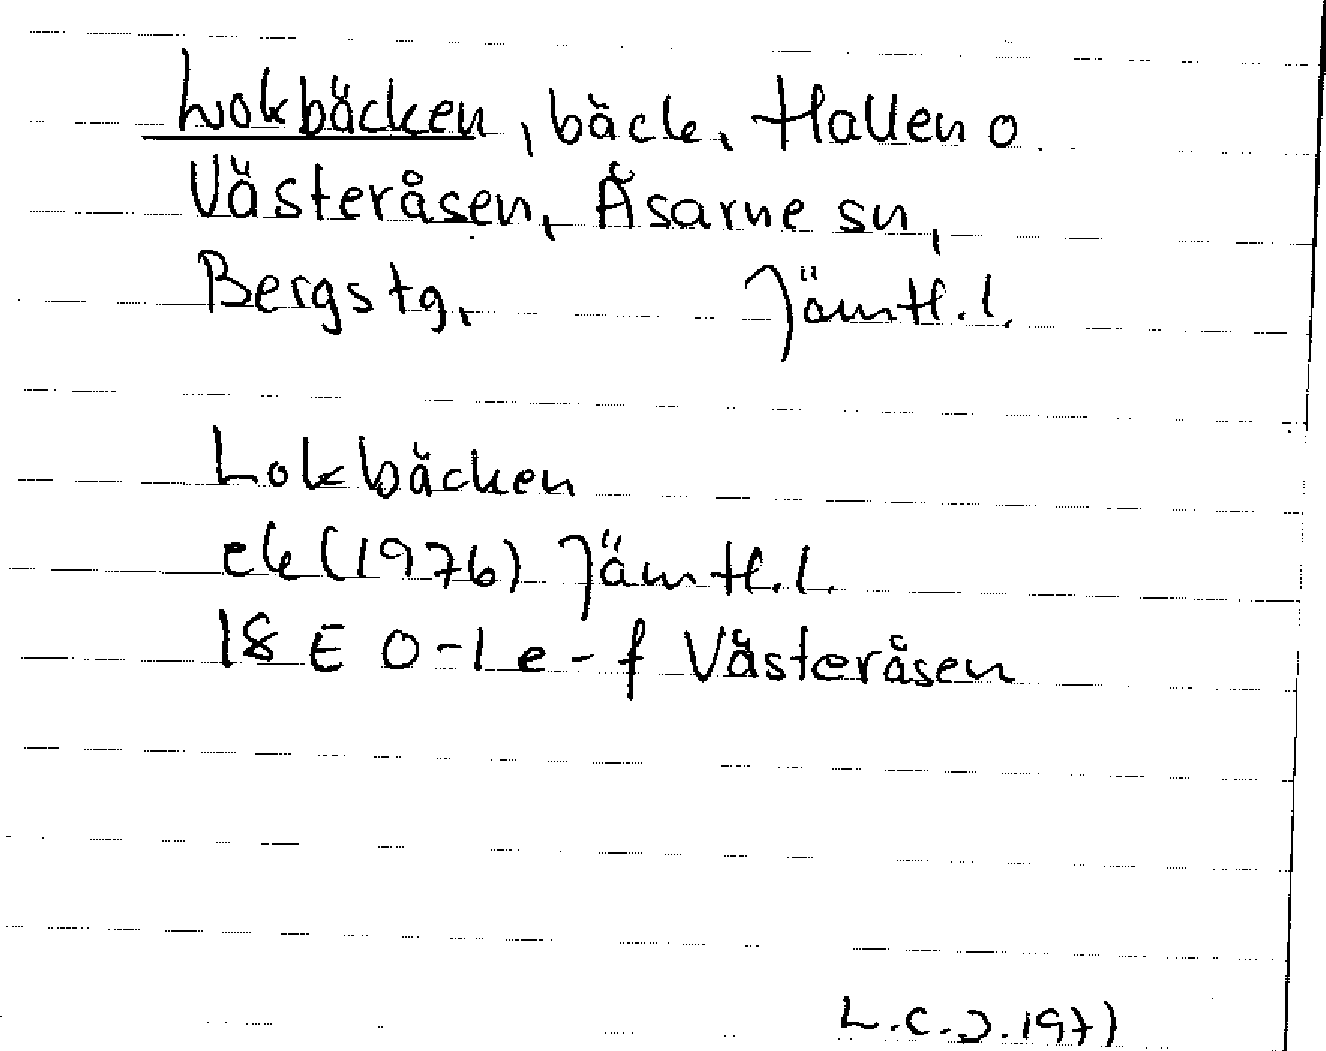 Lokbäcken, bäck, Hallen o
Västeråsen, Åsarne sn,
Bergs tg, Jämtl. l.
Lokbäcken
ek (1976) Jämtl. l.
18 E 0-1 e-f Västeråsen
L.C.J. 1977